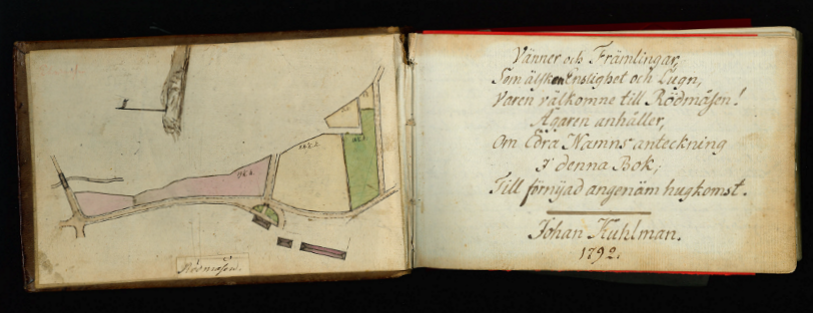 Rödmåsen.
Vänner och Främlingar,
Som älska Enslighet och Lugn,
Varen välkomne till Rödmåsen!
Ägaren anhåller,
Om Edra Namns anteckning
I denna Bok;
Till förnyad angenäm hugkomst.
Johan Kuhlman.
1792.